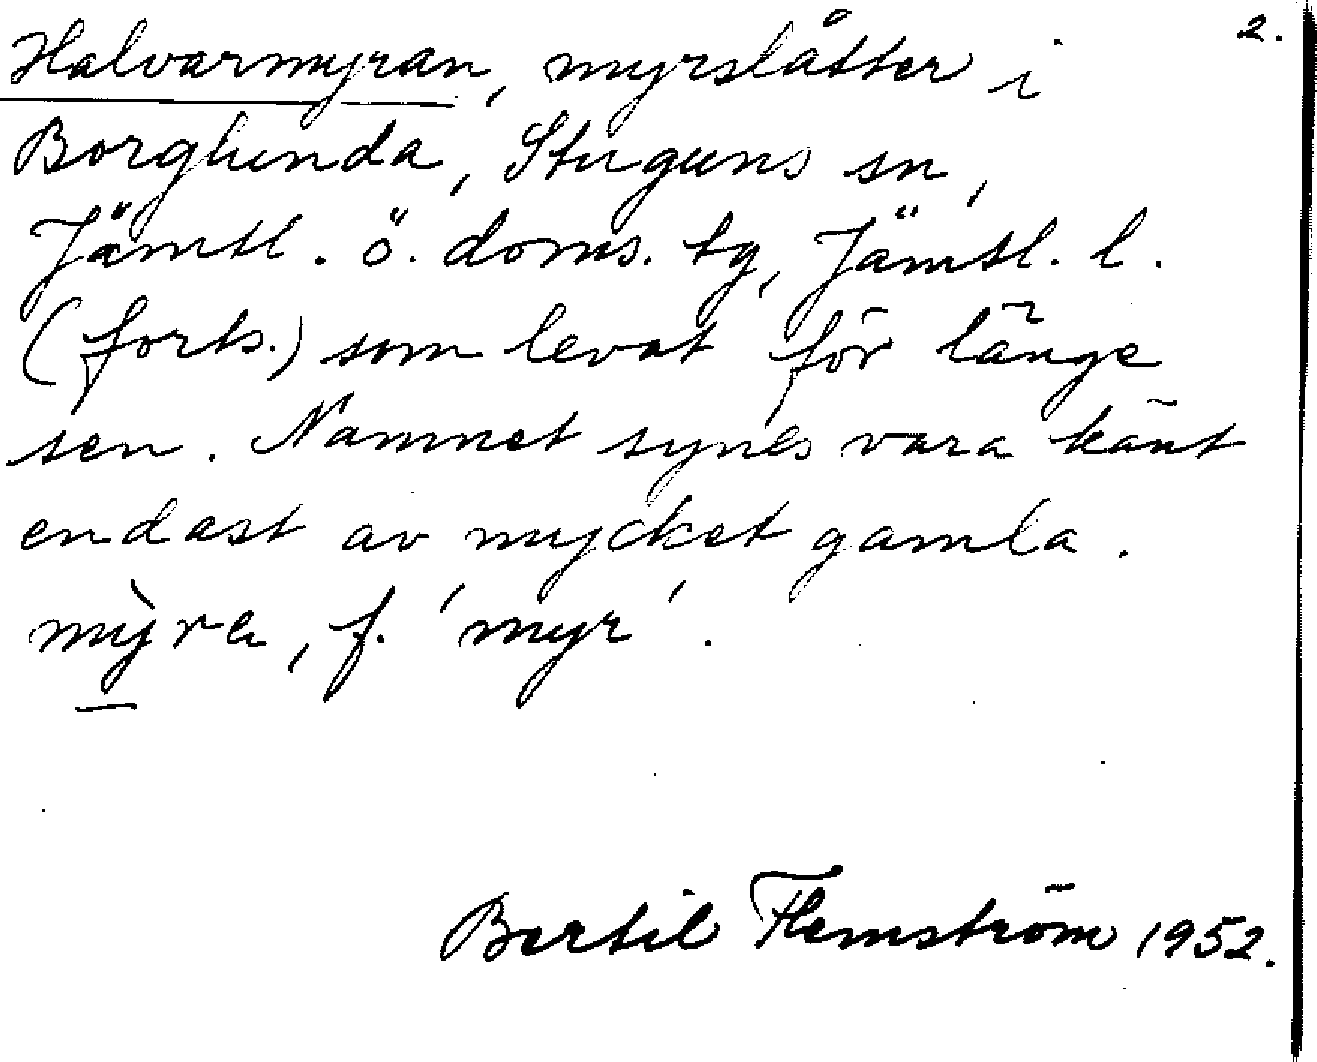 2.
Halvarmyran, myrslåtter i
Borglunda, Stuguns sn,
Jämtl. ö. doms. tg, Jämtl. l.
(forts.) som levat för länge
sen. Namnet synes vara känt
endast av mycket gamla.
mỳra, f. 'myr'.
Bertil Flemström 1952.